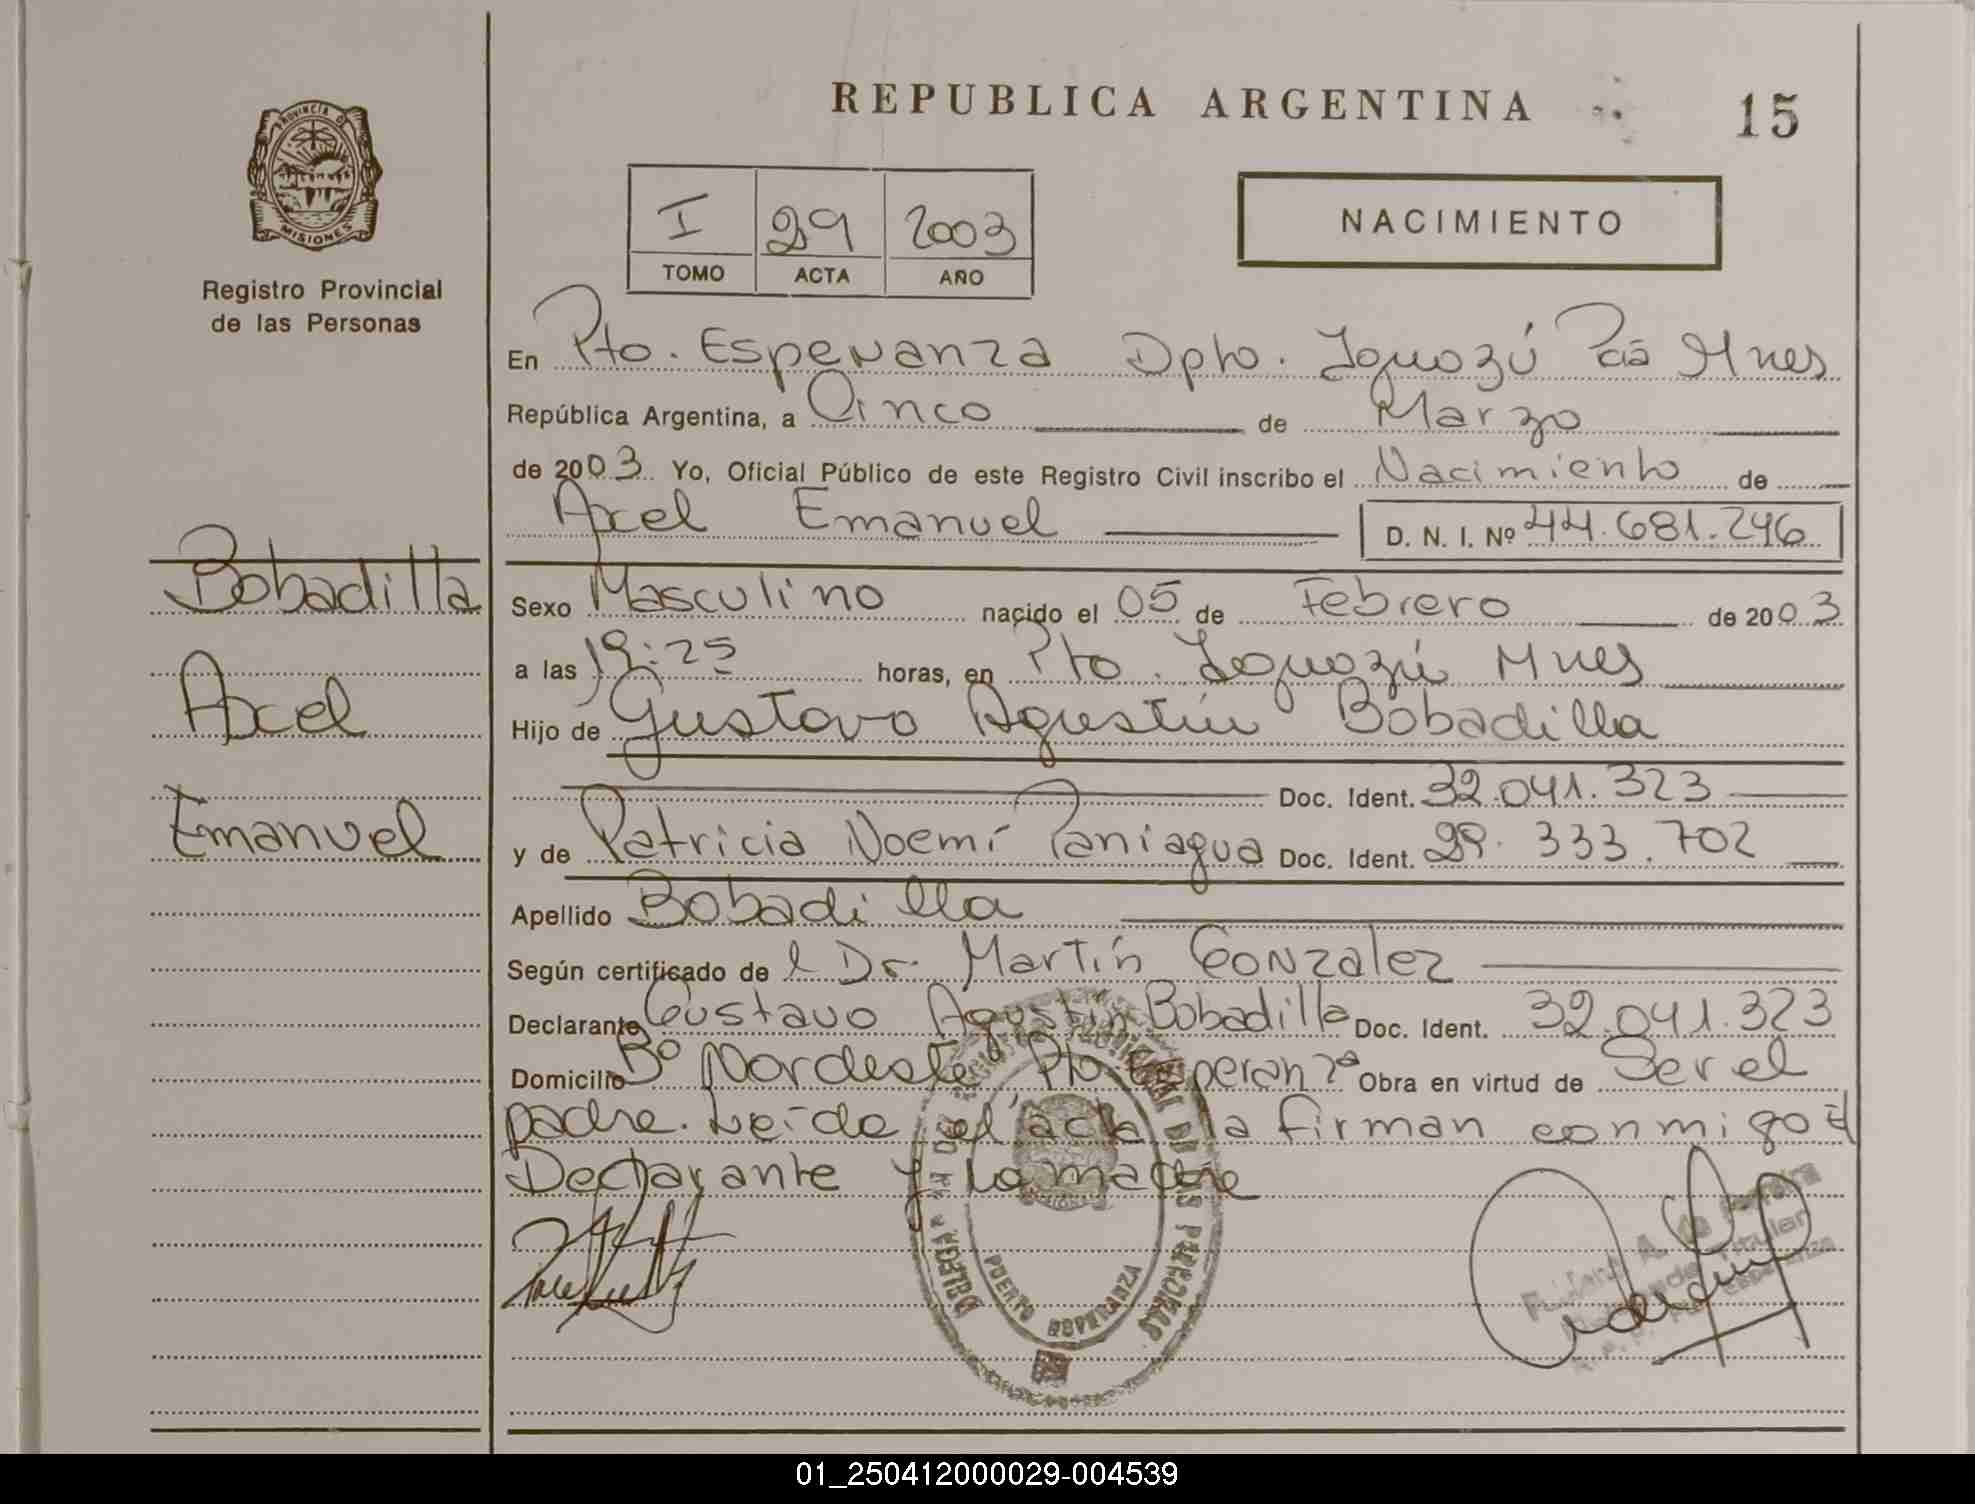 REPUBLICA ARGENTINA
15
PROVINCIA DE
MISIONES
Registro Provincial
de las Personas
I 29 2003
TOMO ACTA AÑO
NACIMIENTO
En Pto. Esperanza Dpto. Iguazú Pcia Mnes
República Argentina, a Cinco de Marzo
de 2003 Yo, Oficial Público de este Registro Civil inscribo el Nacimiento de
Axel Emanuel D. N. I. Nº 44.681.246
Bobadilla
Axel
Emanuel
Sexo Masculino nacido el 05 de Febrero de 2003
a las 19:25 horas, en Pto. Iguazú Mnes
Hijo de Gustavo Agustín Bobadilla
Doc. Ident. 32.041.323
y de Patricia Noemí Paniagua Doc. Ident. 29.333.702
Apellido Bobadilla
Según certificado de l Dr. Martín Gonzalez
Declarante Gustavo Agustín Bobadilla Doc. Ident. 32.041.323
Domicilio Bº Nordeste Pto. Esperanza Obra en virtud de Ser el
padre. Leída el acta la firman conmigo el
Declarante y la madre
PUERTO ESPERANZA
01_250412000029-004539